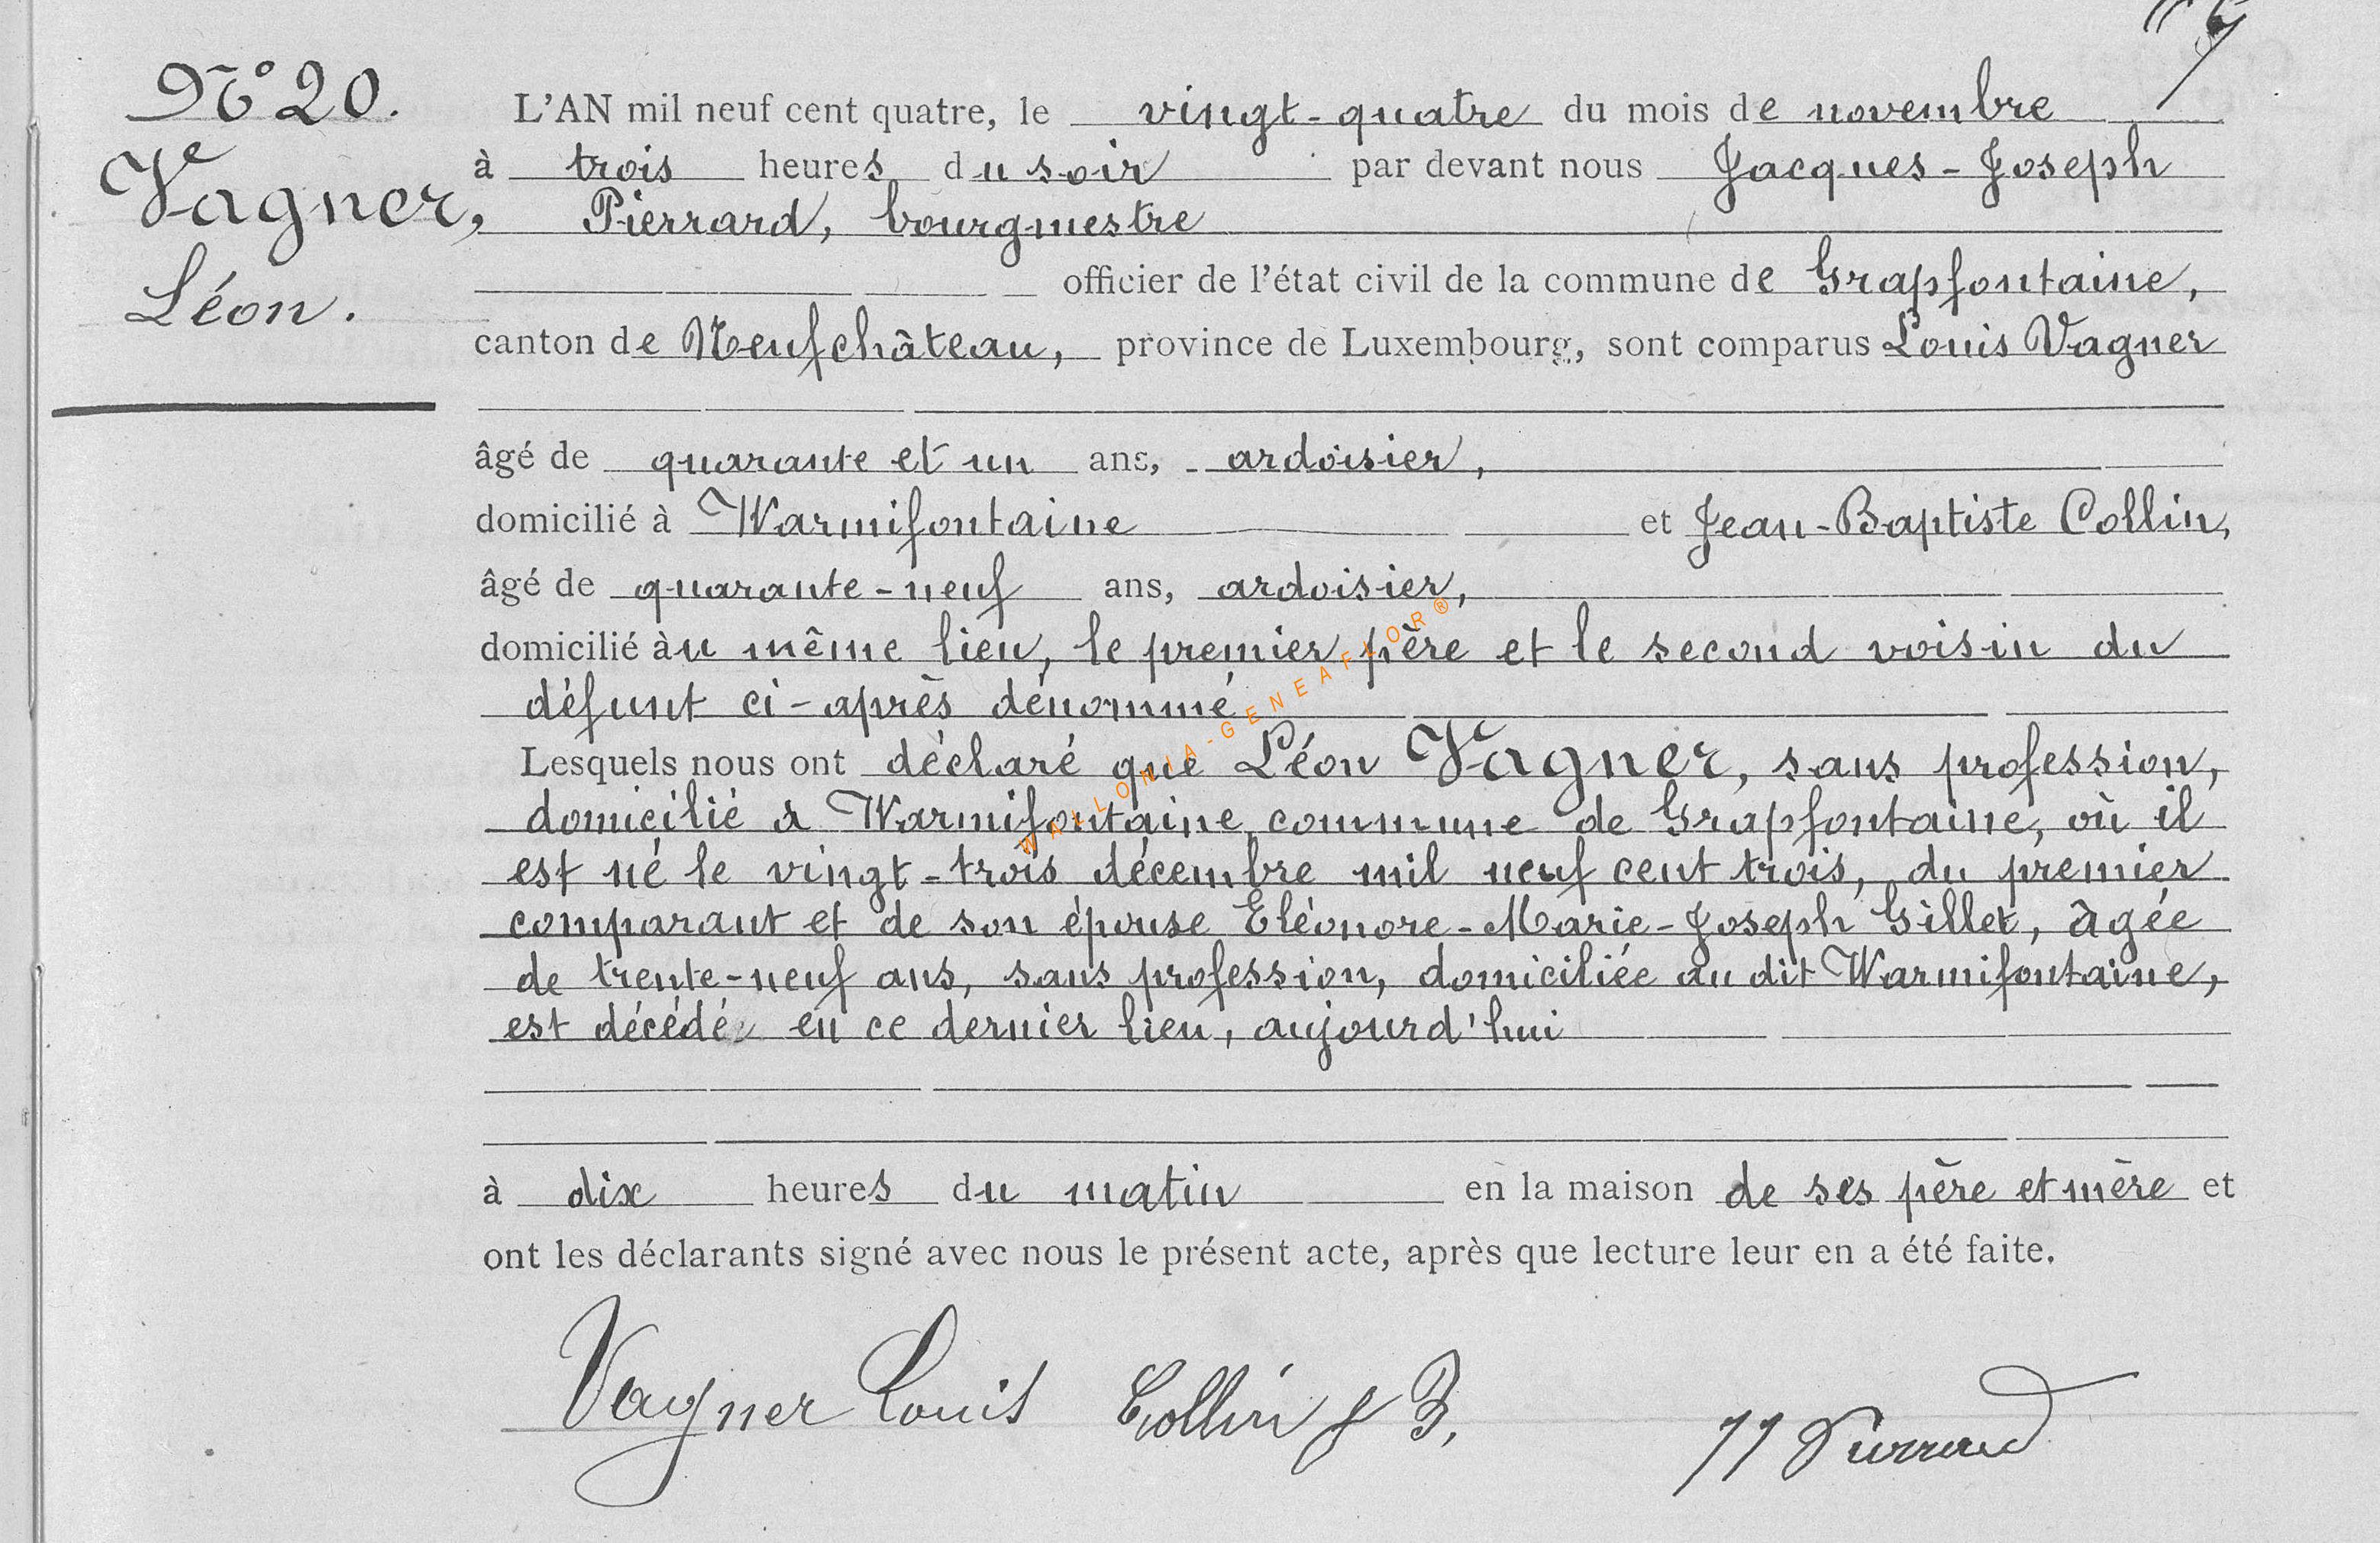 N° 20.
Vagner,
Léon.
L'AN mil neuf cent quatre, le vingt-quatre du mois de novembre
à trois heures du soir par devant nous Jacques-Joseph
Pierrard, bourgmestre
officier de l'état civil de la commune de Grapfontaine,
canton de Neufchâteau, province de Luxembourg, sont comparus Louis Vagner
âgé de quarante et un ans, ardoisier,
domicilié à Warmifontaine et Jean-Baptiste Collin,
âgé de quarante-neuf ans, ardoisier,
domicilié àu même lieu, le premier père et le second voisin du
défunt ci-après dénommé
Lesquels nous ont déclaré que Léon Vagner, sans profession,
domicilié à Warmifontaine, commune de Grapfontaine, où il
est né le vingt-trois décembre mil neuf cent trois, du premier
comparant et de son épouse Eléonore-Marie-Joseph Gillet, âgée
de trente-neuf ans, sans profession, domiciliée au dit Warmifontaine,
est décédé en ce dernier lieu, aujourd'hui
à dix heures du matin en la maison de ses père et mère et
ont les déclarants signé avec nous le présent acte, après que lecture leur en a été faite.
Vagner Louis Collin J B. JJ Pierrard
WALLONIA-GENEAFLOR®